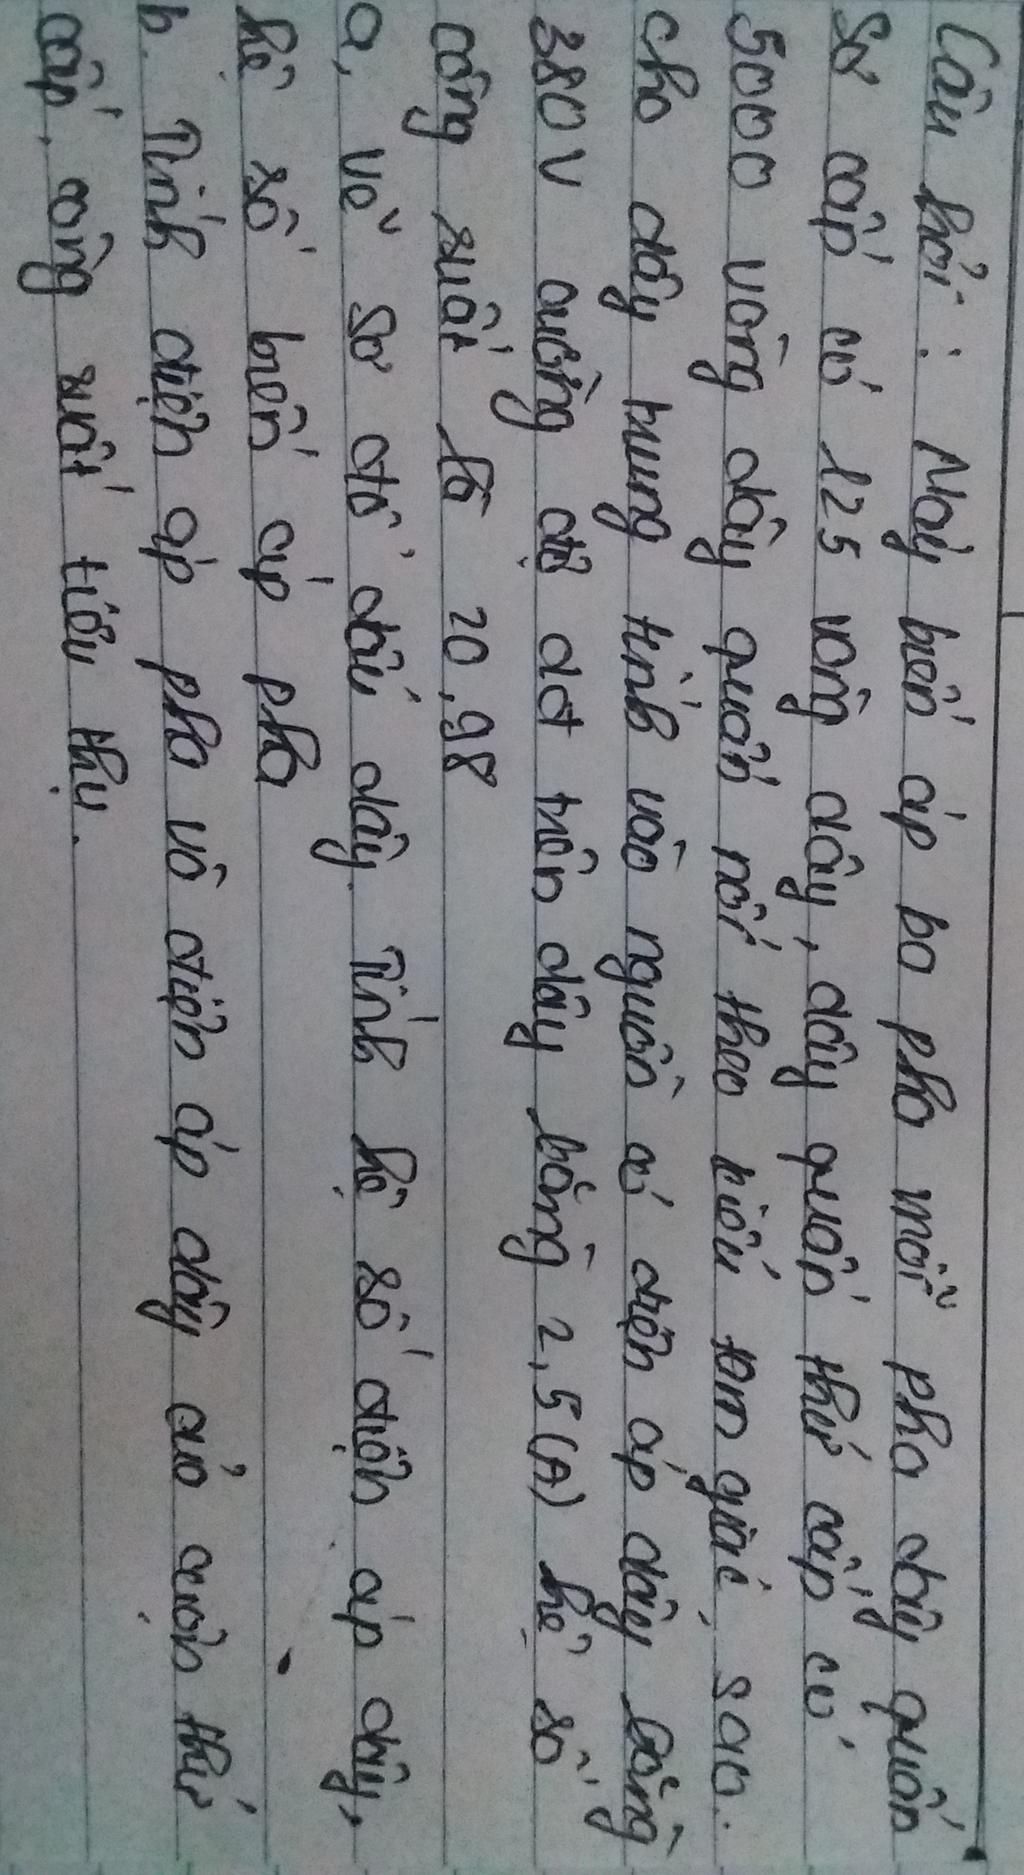 Câu hỏi: Máy biến áp ba pha mỗi pha dây quấn
sơ cấp có 125 vòng dây, dây quấn thứ cấp có
5000 vòng dây quấn nối theo kiểu tam giác, sao.
cho dây trung tính vào nguồn có điện áp dây bằng
380V cường độ dđ trên dây bằng 2,5(A) hệ số
công suất là 20,98
a, Vẽ sơ đồ đấu dây. Tính hệ số điện áp dây,
hệ số biến áp pha
b. Tính điện áp pha và điện áp dây của cuộn thứ
cấp, công suất tiêu thụ.